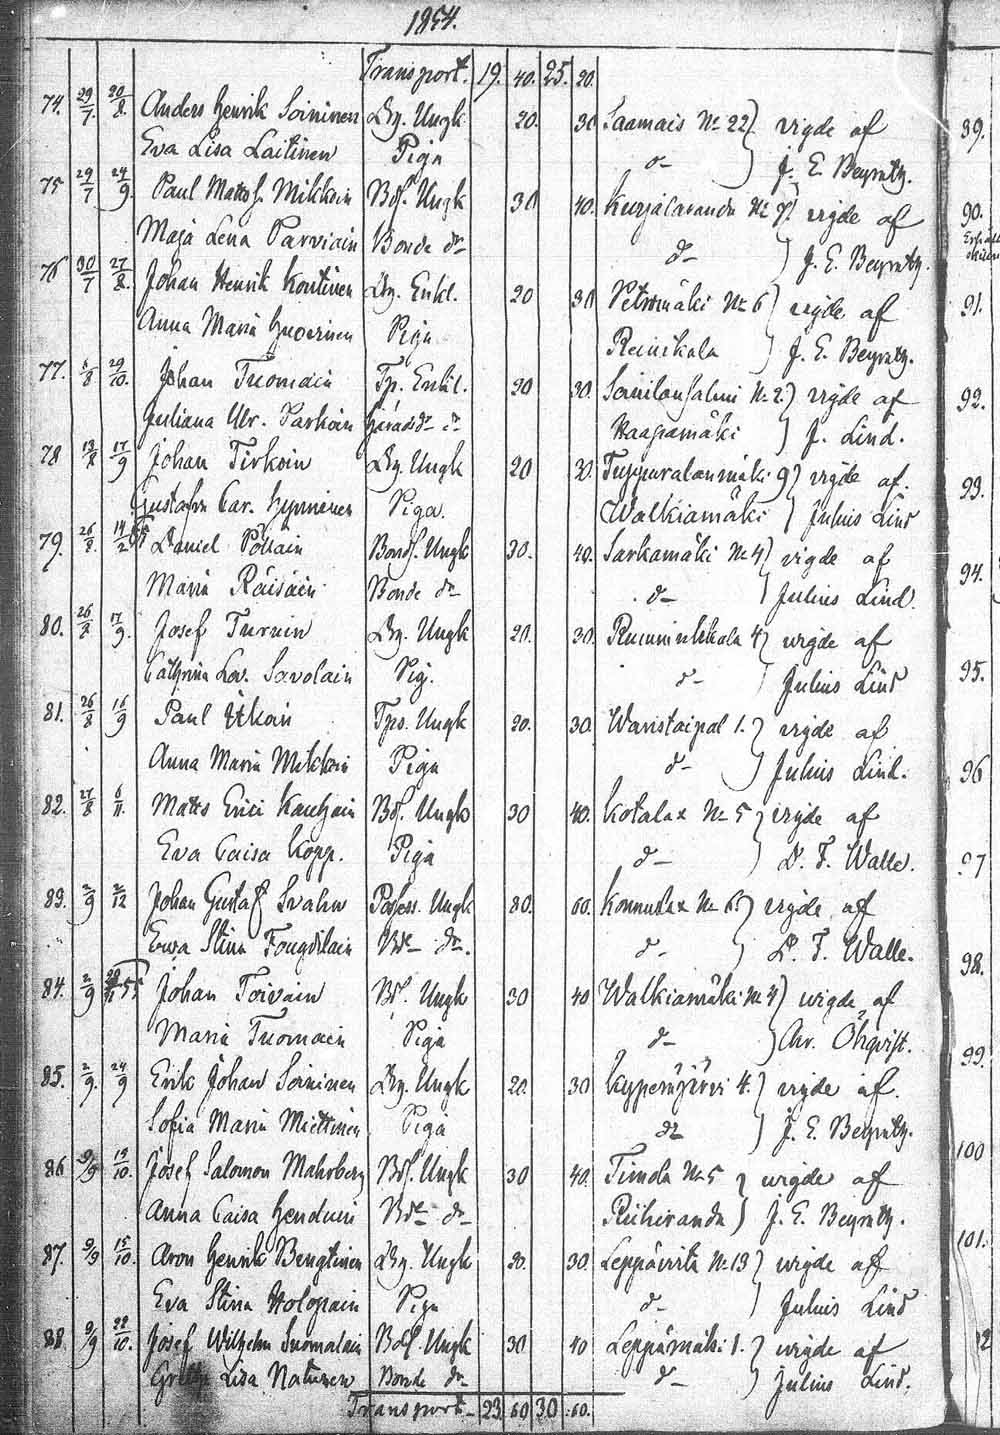 1854.
Transport. 19. 40. 25. 20.
74. 29/7. 20/8. Anders Henrik Soininen Lbg. Ungk. 20. 30 Saamais No 22 } vigde af
Eva Lisa Laitinen Piga d- J. E. Beyrntz.
75 29/7 24/9. Paul Matts f. Mikkoin Bdf. Ungk 30 40. Kurjalaranda No 7. vigde af
Maja Lena Parviain Bonde dr d- ) J. E. Beyrntz.
76 30/7 27/8. Johan Henrik Kontinen Lbg. Enkl. 20 30 Petromäki No 6 } vigde af
Anna Maria Huoerinen Piga Reinikala J. E. Beyrntz.
77. /8 29/10. Johan Tuomain Tp. Enkl. 20 30. Soinilansalmi No 2. ) vigde af
Juliana Ulr. Parkoin Härads dr dr Haapamäki ) J. Lind.
78 /8 17/9 Johan Tirkoin Lbg. Ungk 20 30. Tuppuralanmäki 9 ) vigde af.
Gustafva Car. Hynninen Piga. Walkiamäki ) Julius Lind
79. 26/8. 14/2 55 Daniel Pöllain Bondf. Ungk 30. 40. Sarkamäki No 4 ) vigde af
Maria Räisäin Bonde dr d- ) Julius Lind.
80. 26/8 17/9. Josef Turuin Lbg. Ungk 20. 30. 4 ) vigde af
Cathrina Lov. Savolain Pig. d- Julius Lind
81. 26/8 16/9 Paul Itkoin Tps. Ungk 20. 30. Waristaipal 1. } vigde af
Anna Maria Mikkoin Piga d- Julius Lind.
82. 27/8 6/11. Matts Erici Kauhain Bdf. Ungk 30 40. Kotalax No 5 } vigde af
Eva Caisa Kopp. Piga d- ) D. F. Walle.
83. 2/9 2/12 Johan Gustaf Svahn Possess. Ungk 30. 60. Konnuslax No 6. ) vigde af
Ewa Stina Fougdilain Bde dr. d- ) D. F. Walle.
84. 2/9 55 Johan Toivain Bdf. Ungk 30 40 Walkiamäki No 4 ) vigde af
Maria Tuomain Piga d- ) Chr. Öhqvist.
85. 2/9. 24/9 Erik Johan Soininen Lbg. Ungk 20. 30 Kypperöjärvi 4. } vigde af.
Sofia Maria Miettinen Piga d- ) J. E. Beyrntz.
86 9/9 19/10. Josef Salomon Mahrberg Bdf. Ungk 30 40. Timola No 5 } vigde af
Anna Caisa Henduin Bde dr Riihiranda ) J. E. Beyrntz.
87. 9/9 15/10. Aron Henrik Bengtinen Lbg. Ungk 20. 30. Leppävirta No 13 } vigde af
Eva Stina Holopain Piga d- ) Julius Lind
88. 9/9 22/10. Josef Wilhelm Suomalain Bdf. Ungk 30 40 Leppämäki 1. } vigde af
Greta Lisa Natunen Bonde dr d- ) Julius Lind.
Transport 23. 60 30. 60.
89.
90.
91.
92.
93.
94.
95.
96
97
98.
99.
100
101.